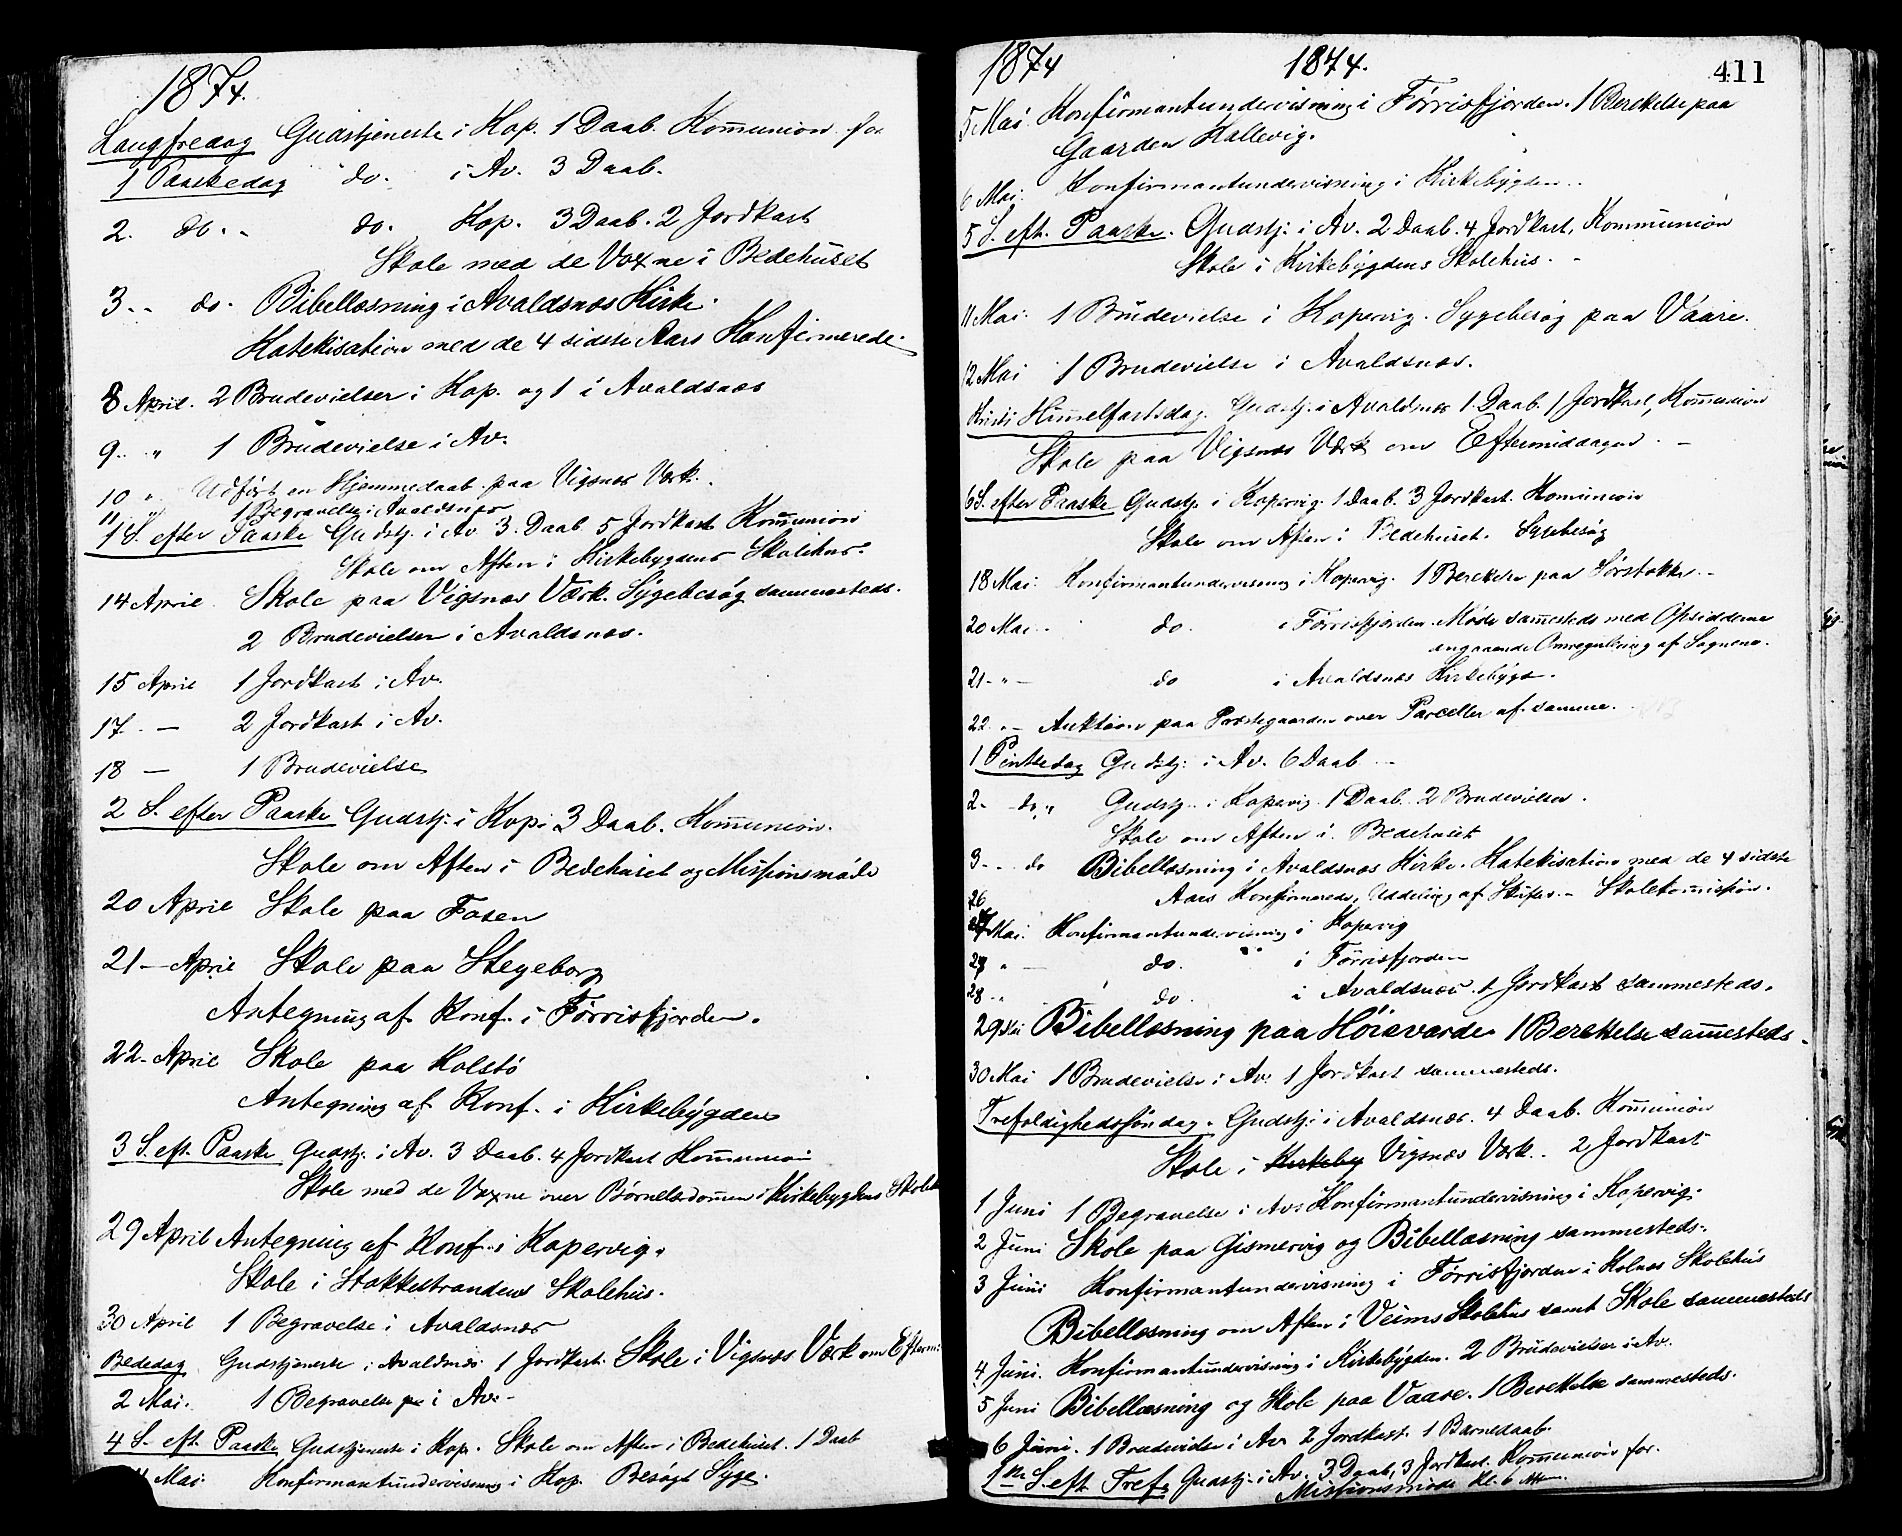 1874.
Langfredag Gudstjeneste i Kop. 1 Daab. Kommunion for
1 Paaskedag do. i Av. 3 Daab.
2. do. - do. Kop. 3 Daab. 2 Jordkast
Skole med de Voxne i Bedehuset
3 - - do. Bibellæsning i Avaldsnæs Kirke.
Katekisation med de 4 sidste Aars Konfirmerede.
8 April. 2 Brudevielser i Kop. og 1 i Avaldsnæs
9. " 1 Brudevielse i Av.
10 " Udført en Hjemmedaab paa Vigsnæs Værk.
11. " 1 Begravelse i Avaldsnæs
1 S. efter Paaske Gudstj. i Av. 3. Daab 5 Jordkast Kommunion
Skole om Aften i Kirkebygdens Skolehus.
14 April. Skole paa Vigsnæs Værk. Sygebesøg sammesteds.
2 Brudevielser i Avaldsnæs.
15 April 1 Jordkast i Av.
17. - 2 Jordkast i Av.
18 - 1 Brudevielse
2 S. efter Paaske Gudstj. i Kop. 3 Daab. Kommunion.
Skole om Aften i Bedehuset og Missionsmøde
20 April Skole paa Fosen
21 - April Skole paa Stegeborg
Antegning af Konf. i Førrisfjorden.
22 - April Skole paa Kolstø
Antegning af Konf. i Kirkebygden
3 S. eft. Paaske Gudstj. i Av. 3 Daab. 4 Jordkast Kommunion
Skole med de Voxne over Børnelærdommen i Kirkebygdens Skoleh
29 April Antegning af Konf. i Kopervig.
Skole i Stokkestrandens Skolehus.
30 April 1 Begravelse i Avaldsnæs
Bededag Gudstjeneste i Avaldsnæs 1 Jordkast. Skole i Vigsnæs Værk om Efterm
2 Mai. 1 Begravelse i Av. -
4 S. eft. Paaske Gudstjeneste i Kop. Skole om Aften i Bedehuset. 1 Daab
4 Mai. Konfirmantundervisning i Kop. Besøgt Syge.
1874 1874. 411
5 Mai. Konfirmantundervisning i Førrisfjorden. 1 Berettelse paa
Gaarden Kallevig.
6 Mai. Konfirmantundervisning i Kirkebygden. -
5 S. eft. Paaske. Gudstj. i Av. 2 Daab. 4 Jordkast, Kommunion
Skole i Kirkebygdens Skolehus. -
11 Mai. 1 Brudevielse i Kopervig. Sygebesøg paa Vaare.
12 Mai 1 Brudevielse i Avaldsnæs.
Kristi Himmelfartsdag. Gudstj. i Avaldsnæs 1. Daab. 1 Jordkast, Kommunion
Skole paa Vigsnæs Værk om Eftermiddagen. -
6 S. efter Paaske Gudstj. i Kopervig. 1 Daab. 3 Jordkast. Kommunion
Skole om Aften i Bedehuset. Sygebesøg
18 Mai. Konfirmantundervisning i Kopervig. 1 Berettelse paa Sørstokke. -
20 Mai. - do. i Førrisfjorden. Møde sammesteds med Opsidderne
angaaende Omregulering af Sognene.
21 - " - do i Avaldsnæs Kirkebygd.
22. " - Auktion paa Præstegaarden over Parceller af samme.
1 Pintsedag Gudstj. i Av. 6 Daab -
2 - do. " Gudstj. i Kopervig. 1 Daab. 2 Brudevielser.
Skole om Aften i Bedehuset
3 - - do Bibellæsning i Avaldsnæs Kirke. Katekisation med de 4 sidste
Aars Konfirmerede, Uddeling af Skrifter. - Skolekommission.
26
Mai. Konfirmantundervisning i Kopervig
27 " - do. i Førrisfjorden
28 - " do. i Avaldsnæs. 1 Jordkast sammesteds.
29 Mai Bibellæsning paa Høievarde 1 Berettelse sammesteds.
30 Mai 1 Brudevielse i Av. 1 Jordkast sammesteds.
Trefoldighedssøndag. Gudstj. i Avaldsnæs. 4 Daab. Kommunion
Skole i Kirkeby Vigsnæs Værk. 2 Jordkast
1 Juni 1 Begravelse i Av. Konfirmantundervisning i Kopervig.
2 Juni Skole paa Gismervig og Bibellæsning sammesteds.
3 Juni Konfirmantundervisning i Førrisfjorden i Kolnæs Skolehus
Bibellæsning om Aften i Veims Skolehus samt Skole sammesteds
4 Juni. Konfirmantundervisning i Kirkebygden. 2 Brudevielser i Av.
5 Juni Bibellæsning og Skole paa Vaare. 1 Berettelse sammesteds.
6 Juni. 1 Brudevielse i Av 2 Jordkast. 1 Barnedaab.
1ste S. eft. Tref. Gudstj. i Av. 3 Daab, 3 Jordkast. Kommunion for.
Missionsmøde kl. 6 Aften.